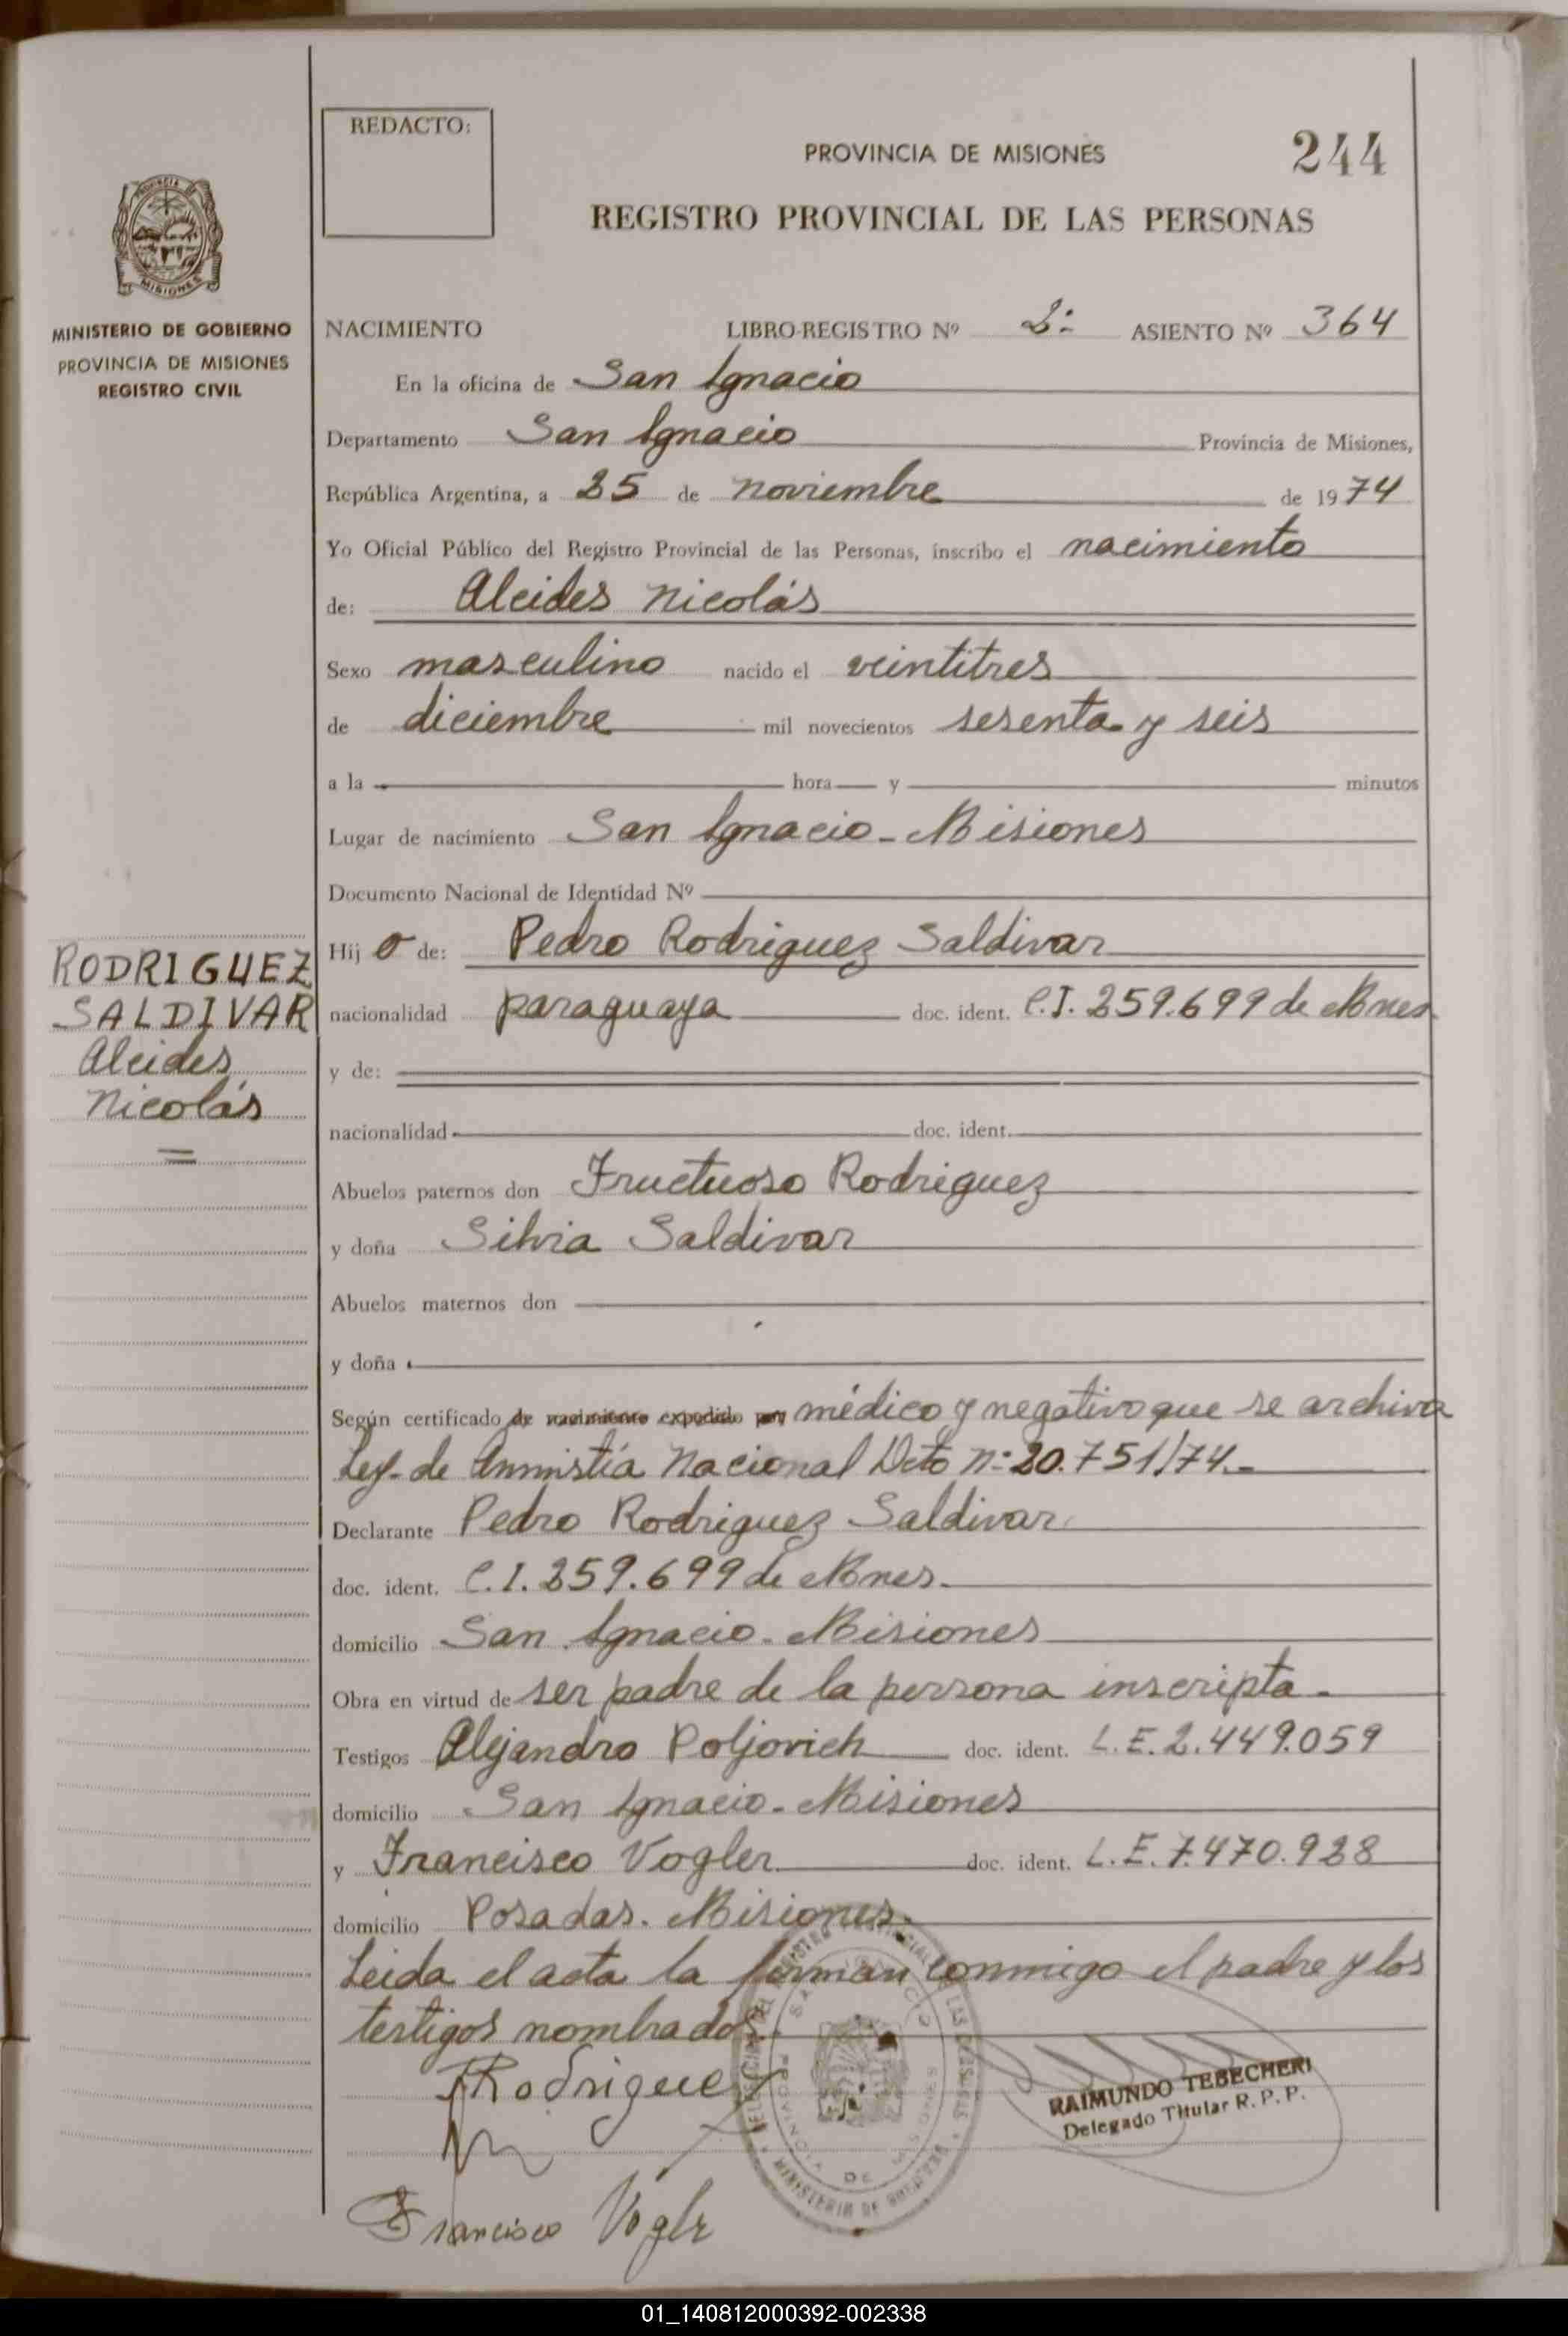 REDACTO:
PROVINCIA DE MISIONES
244
REGISTRO PROVINCIAL DE LAS PERSONAS
PROVINCIA DE
MISIONES
MINISTERIO DE GOBIERNO
PROVINCIA DE MISIONES
REGISTRO CIVIL
NACIMIENTO LIBRO-REGISTRO Nº 2º ASIENTO Nº 364
En la oficina de San Ignacio
Departamento San Ignacio Provincia de Misiones,
República Argentina, a 25 de noviembre de 1974
Yo Oficial Público del Registro Provincial de las Personas, inscribo el nacimiento
de: Alcides Nicolás
Sexo masculino nacido el veintitres
de diciembre mil novecientos sesenta y seis
a la hora y minutos
Lugar de nacimiento San Ignacio - Misiones
Documento Nacional de Identidad Nº
Hijo de: Pedro Rodriguez Saldivar
nacionalidad paraguaya doc. ident. C.I. 259.699 de Mnes
y de:
nacionalidad doc. ident.
RODRIGUEZ
SALDIVAR
Alcides
Nicolás
Abuelos paternos don Fructuoso Rodriguez
y doña Silvia Saldivar
Abuelos maternos don
y doña
Según certificado de nacimiento expedido por médico y negativo que se archiva
Ley de Amnistía Nacional Dcto nº 20.751/74.-
Declarante Pedro Rodriguez Saldivar
doc. ident. C.I. 259.699 de Mnes.
domicilio San Ignacio - Misiones
Obra en virtud de ser padre de la persona inscripta.
Testigos Alejandro Poljovich doc. ident. L.E. 2.449.059
domicilio San Ignacio - Misiones
y Francisco Vogler doc. ident. L.E. 7.470.928
domicilio Posadas. Misiones.
Leida el acta la firman conmigo el padre y los
testigos nombrados.
Rodriguez
RAIMUNDO TEBECHERI
Delegado Titular R.P.P.
MINISTERIO DE GOBIERNO
Francisco Vogler
01_140812000392-002338